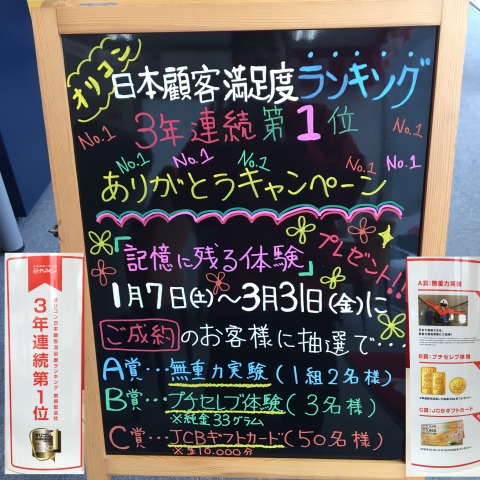 オリコン
日本顧客満足度ランキング
3年連続第1位
No.1
No.1
No.1
No.1
No.1
No.1
No.1
ありがとうキャンペーン
「記憶に残る体験」
プレゼント!!
1月7日(土)〜3月31日(金)に
ご成約のお客様に抽選で…
A賞…無重力実験(1組2名様)
B賞…プチセレブ体験(3名様)
※純金33グラム
C賞…JCBギフトカード(50名様)
※¥10,000分
オリコン日本顧客満足度ランキング 車買取会社
3年連続第1位
A賞:無重力実験
B賞:プチセレブ体験
C賞:JCBギフトカード